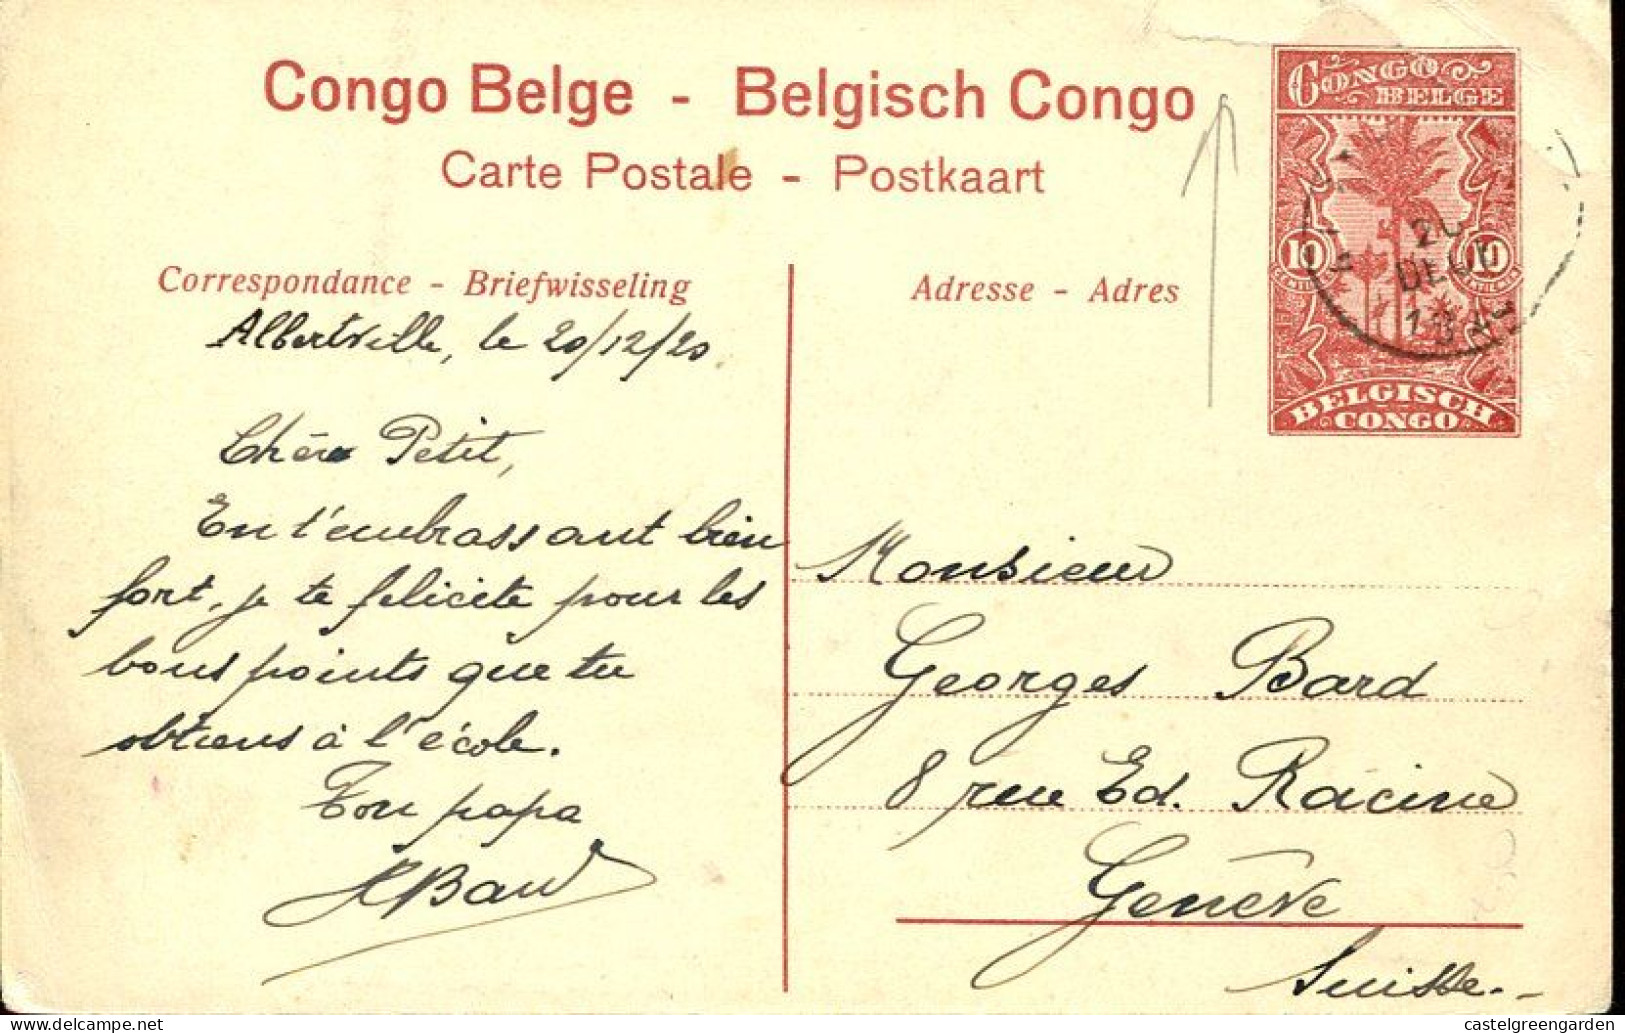 Congo Belge - Belgisch Congo
Carte Postale - Postkaart
CONGO
BELGE
10 10
BELGISCH
CONGO
Correspondance - Briefwisseling
Adresse - Adres
Albertville, le 20/12/20
Chère Petit,
En t'embrassant bien
fort, je te felicite pour les
bons points que tu
obtiens à l'école.
Ton papa
Bard
Monsieur
Georges Bard
8 rue Ed. Racine
Genève
Suisse.-
castelgreengarden